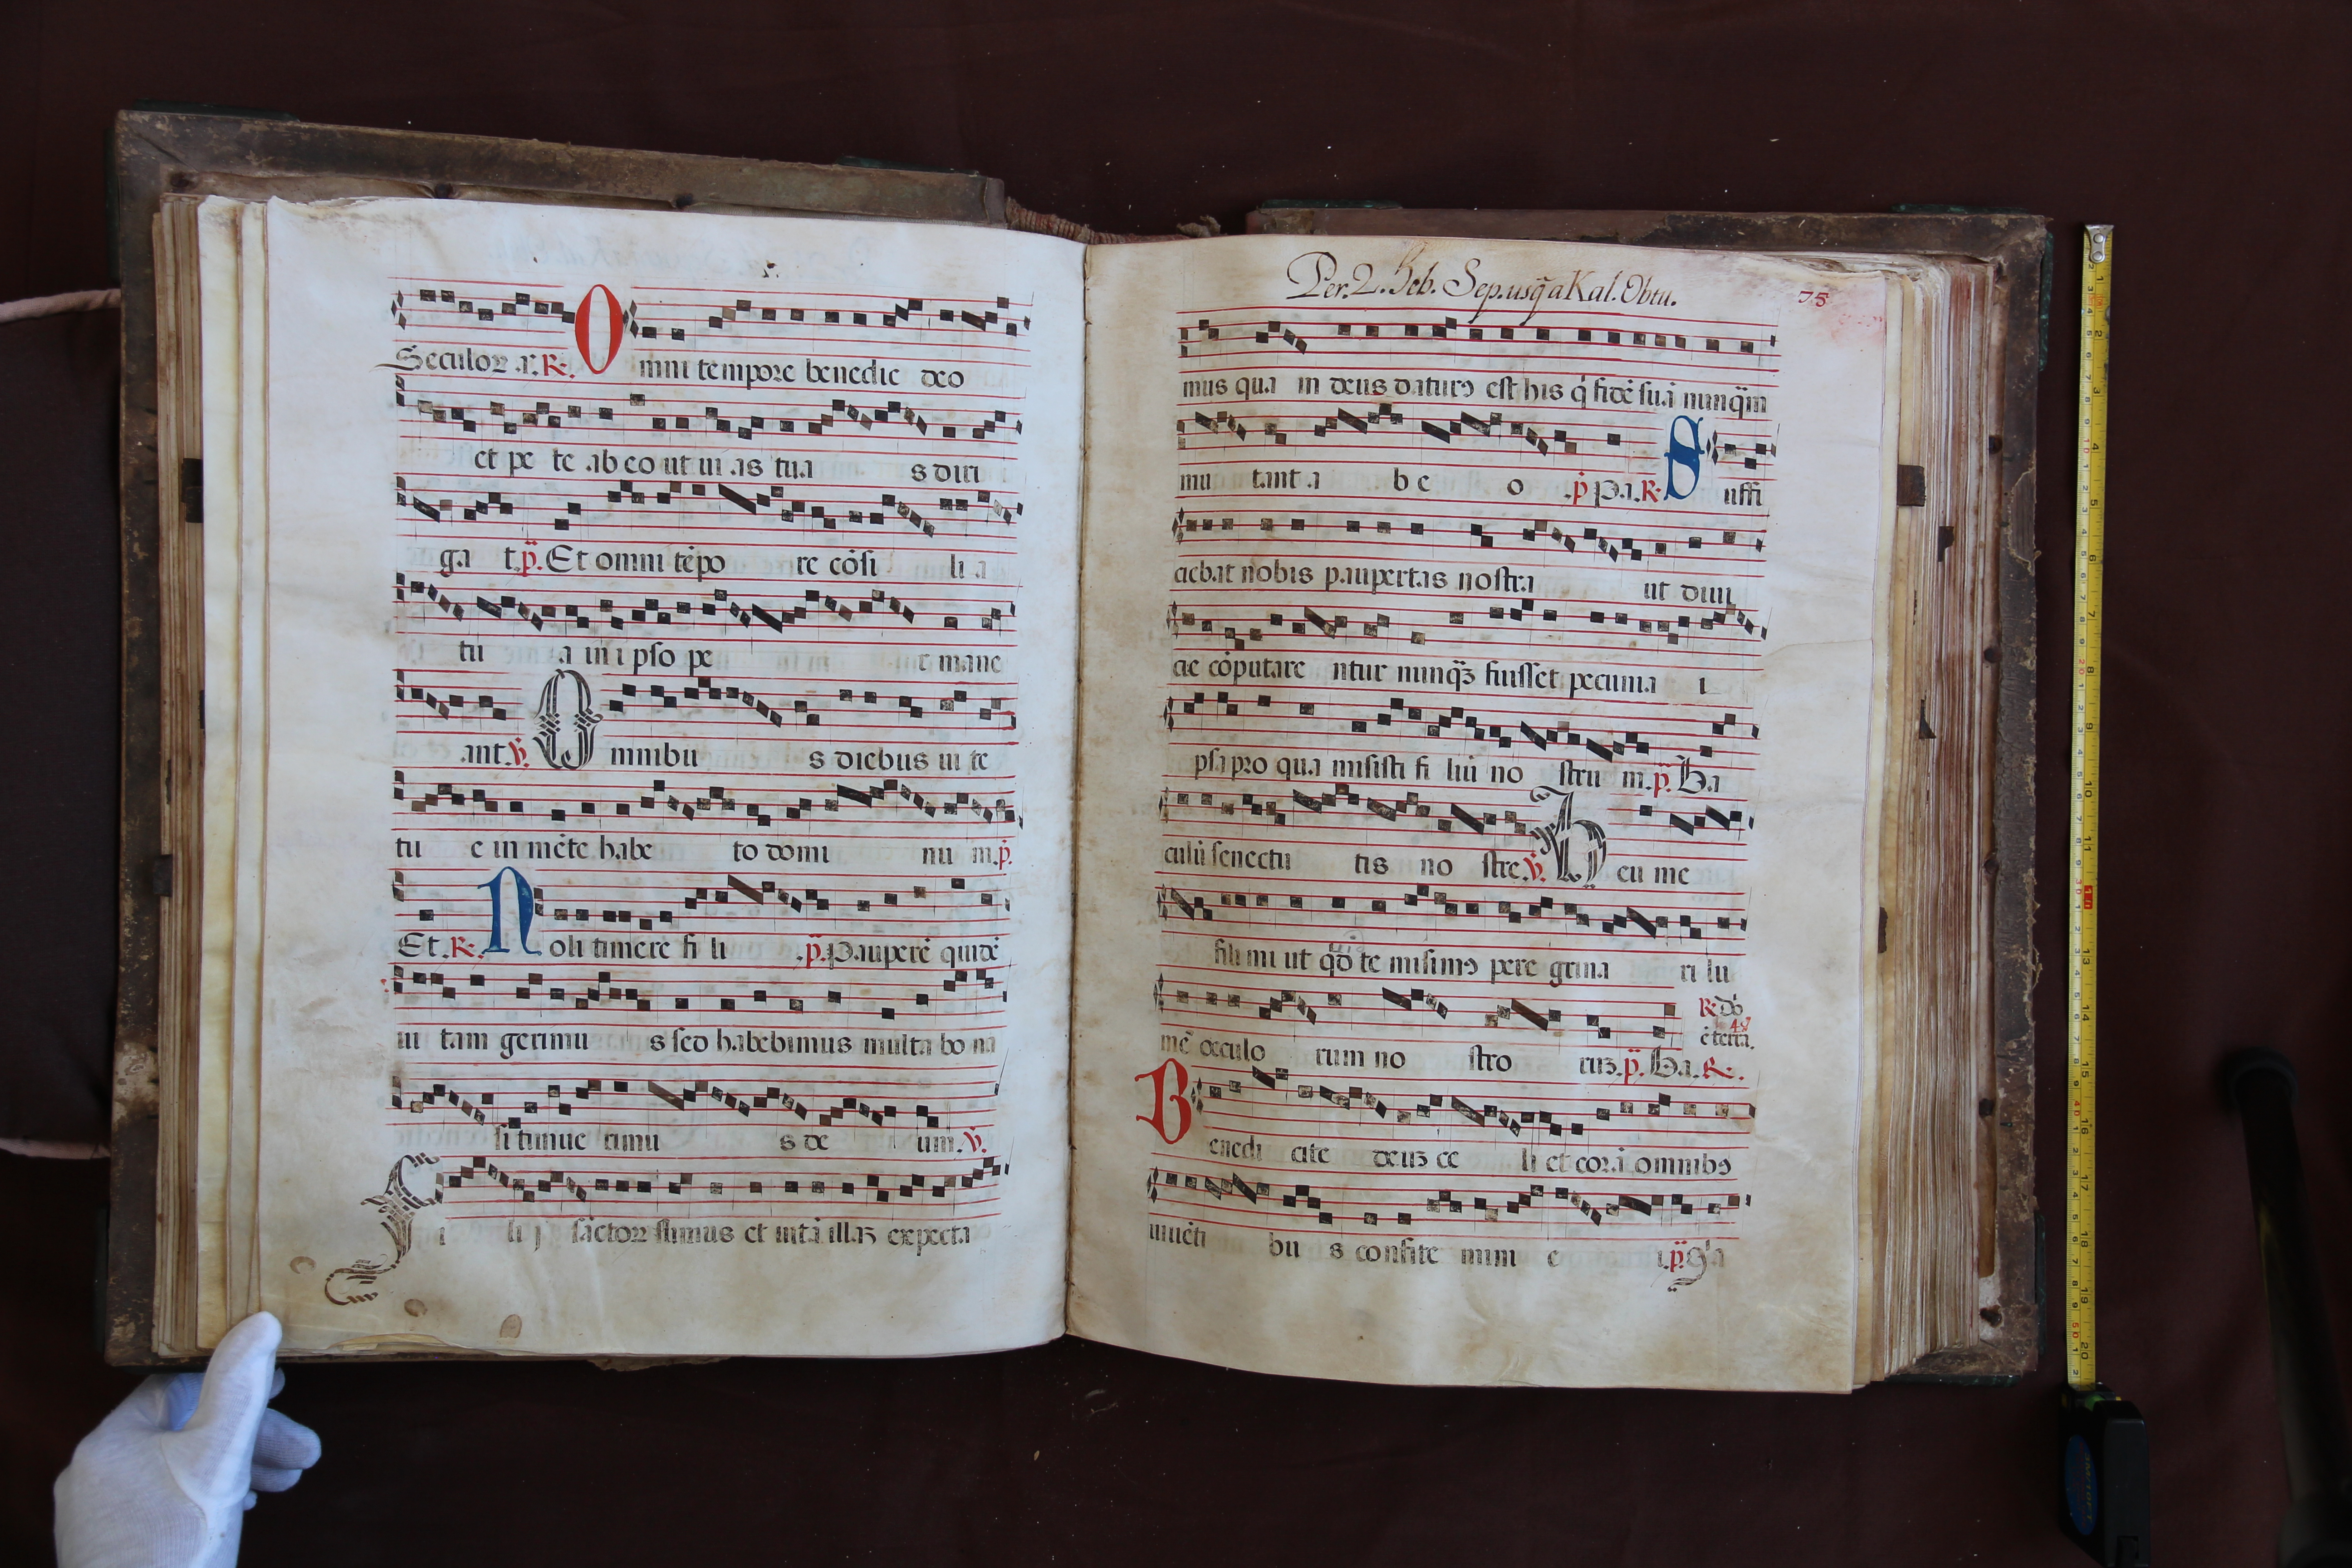 Seculoꝝ .a. R. Omni tempore benedic deo
et pe te ab eo ut ui as tua s diri
ga t. p̄. Et omni tēpo re cōsi li a
tu a in i pso pe r mane
ant. V̄. Omnibu s diebus ui te
tu e in mēte habe to domi nu m. p̄.
Et. R. Noli timere fi li .p̄. Pauperē quidē
ui tam gerimu s sed habebimus multa bo na
si timue rimu s de um. V̄.
Fi li j sāctoꝝ sumus et uitā illaꝫ expecta
Per. 2. Feb. Sep. usq̄ a Kal. Obtu.
75
mus qua m deus daturꝰ est his q̇ fidē suā nunq̄m
mu tant a b e o .p̄ Pa. R. Suffi
ciebat nobis paupertas nostra ut diui
cie cōputare ntur nunq̄ꝫ fuisset pecunia i
psa pro qua misisti fi liū no stru m. p̄. Ba
culū senectu tis no stre. V̄. Heu me
fili mi ut qd te misimꝰ pere grina ri lu
mē oculo rum no stro ruꝫ. p̄. Ba. R.
R. Dō
ē terra.
Benedi cite deuꝫ ce li et corā omnibꝰ
uiuēti bu s confite mini e i. p̄. Q̇a